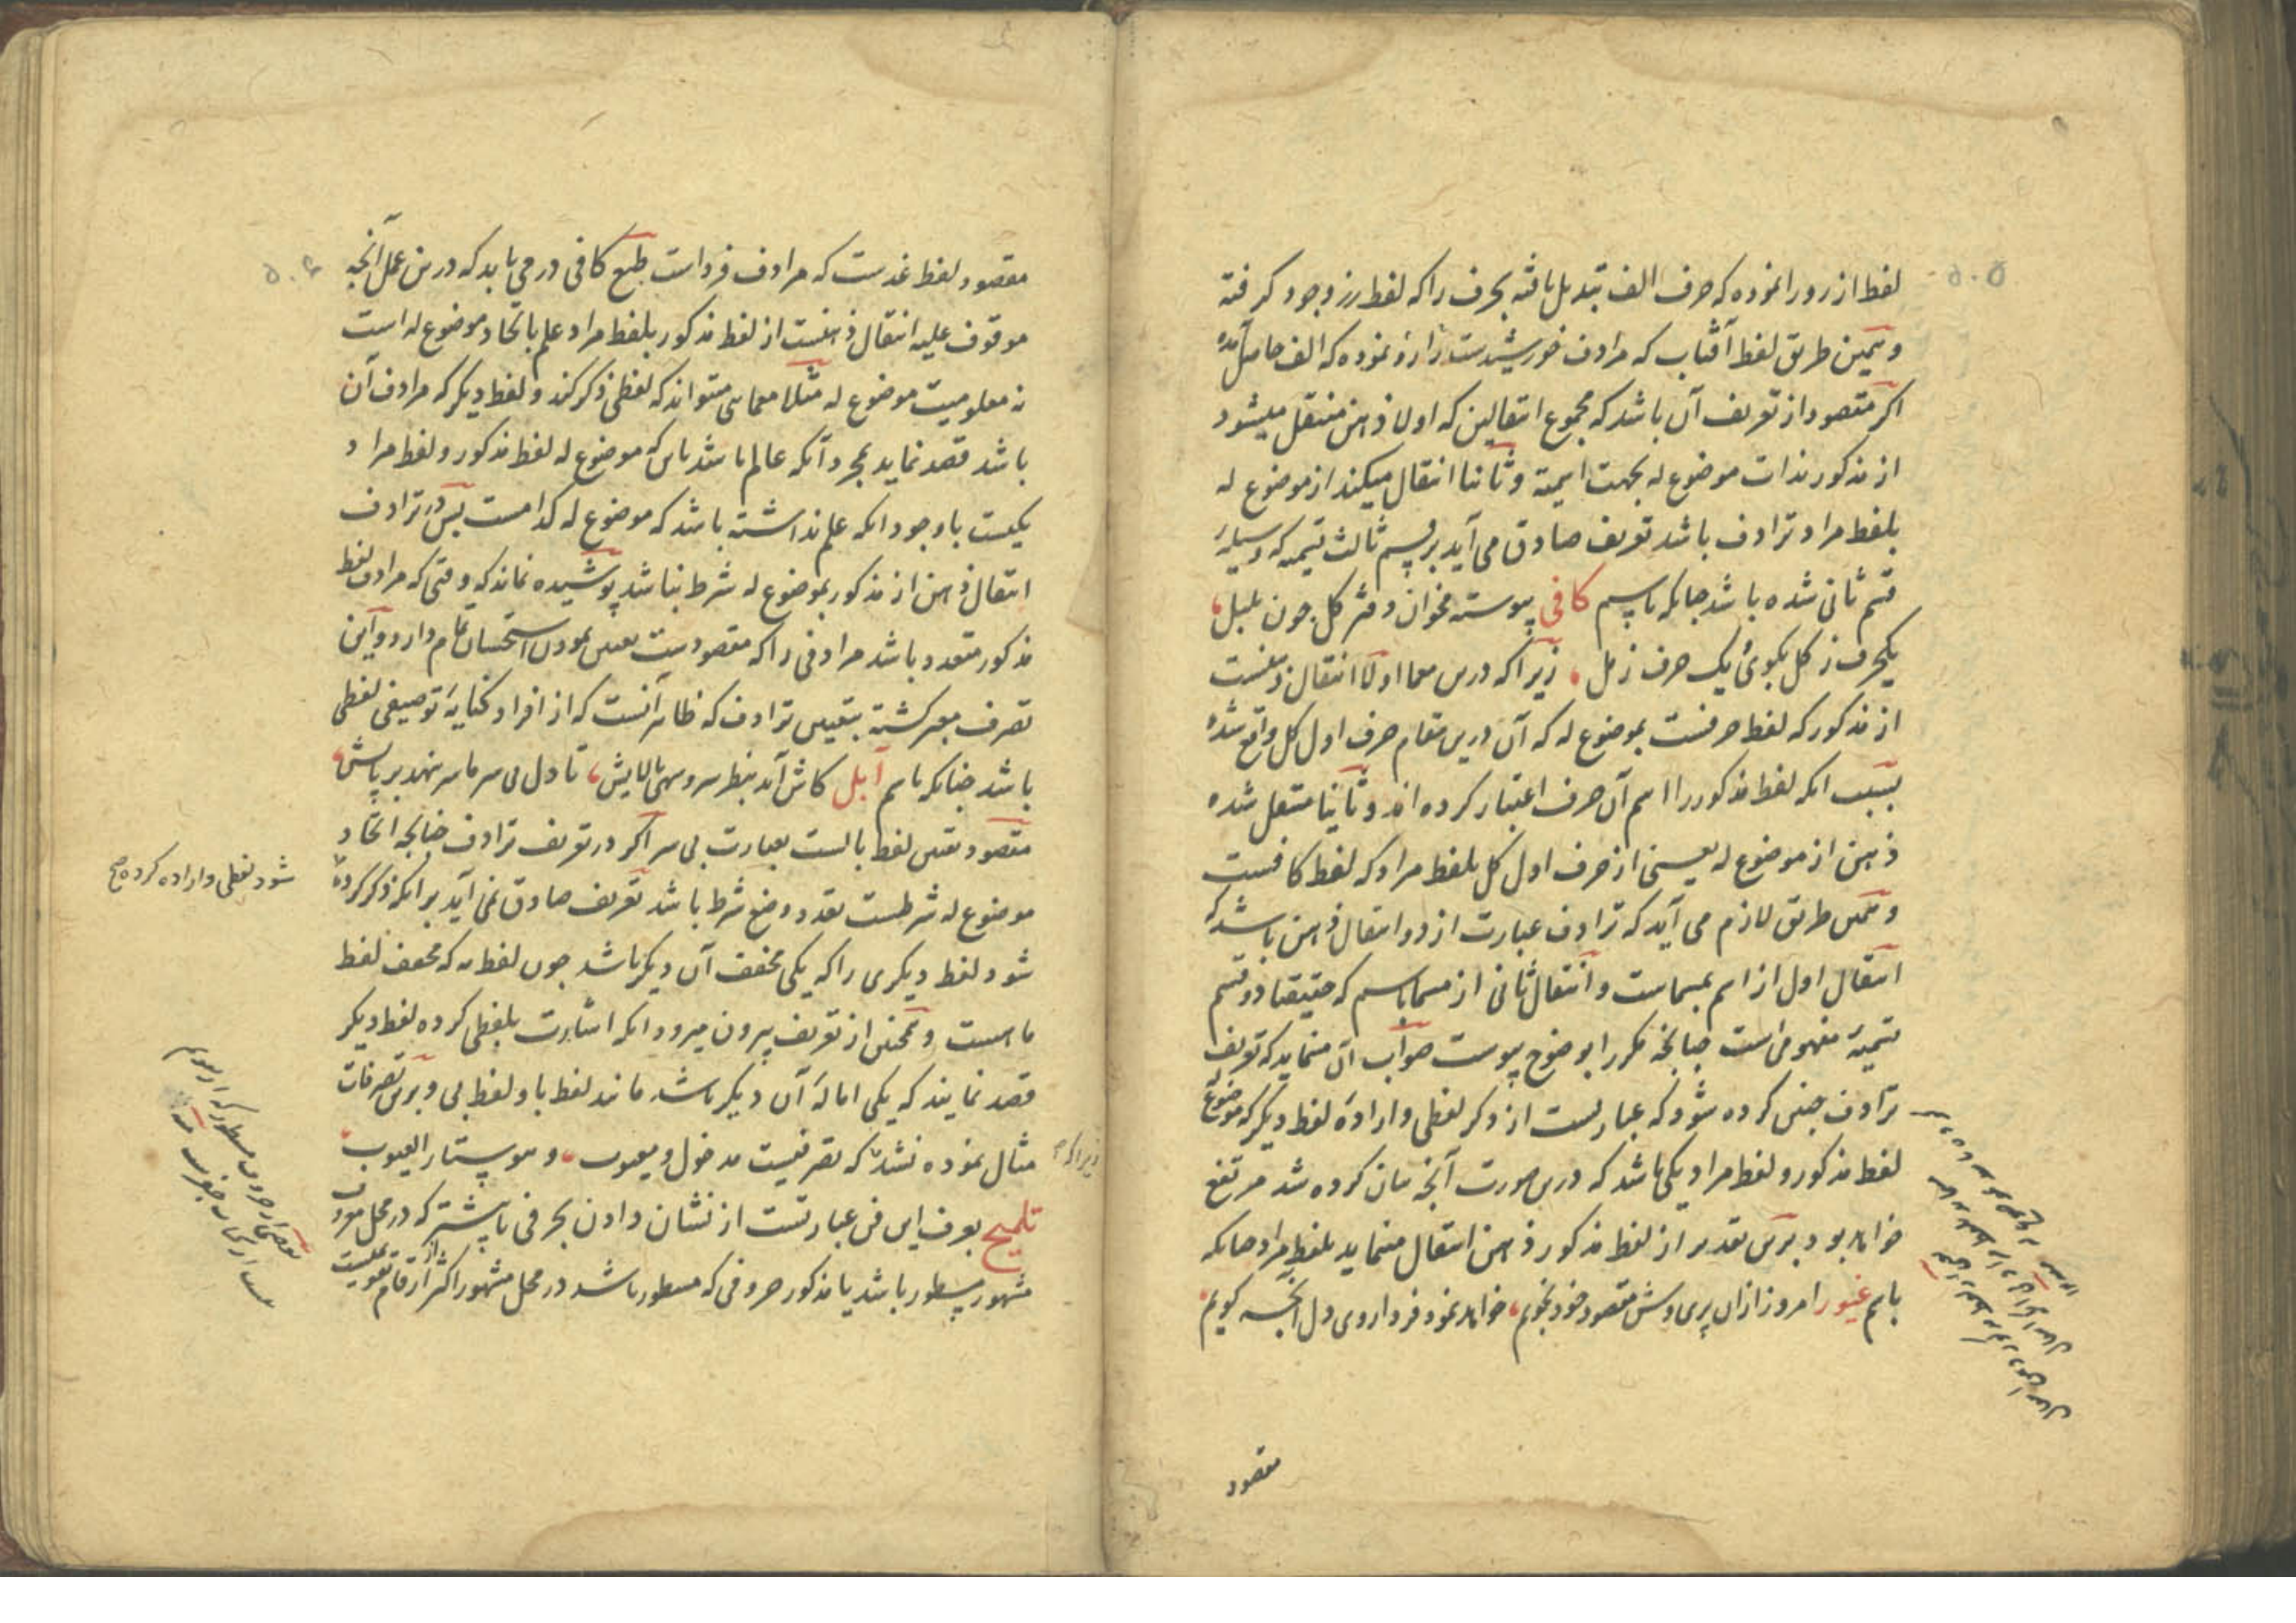 لفظ از رو را نموده که حرف الف تبدیل یافته بحرف را که لفظ رز وجود کرفته
و همین طریق لفظ آفتاب که مرادف خورشیدست اراده نموده که الف حاصل آمده
اکر مقصود از تعریف آن باشد که مجموع انتقالین که اولا ذهن منتقل میشود
از مذکور بذات موضوع له بجهت اسمیة و ثانیا انتقال میکند از موضوع له
بلفظ مراد ترادف باشد تعریف صادق می آید بر قسم ثالث تسمیه که وسیلهٔ
قسم ثانی شده باشد چنانکه باسم کافی پیوسته مخوان دفتر کل چون بلبل
یکحرف ز کل بکوی یک حرف ز مل زیرا که درین معما اولا انتقال ذهنست
از مذکور که لفظ حرفست بموضوع له که آن درین مقام حرف اول کل واقع شده
بسبب انکه لفظ مذکور را اسم آن حرف اعتبار کرده اند و ثانیا منتقل شده
ذهن از موضوع له یعنی از حرف اول کل بلفظ مراد که لفظ کافست
و همین طریق لازم می آید که ترادف عبارت از دو انتقال ذهن باشد که
انتقال اول از اسم بمسماست و انتقال ثانی از مسما باسم که حقیقتا دو قسم
تسمیه مفهومی است چنانچه مکرر ابوضوح پیوست صواب آن مینماید که تعریف
ترادف چنین کرده شود که عبارتست از ذکر لفظی و ارادهٔ لفظ دیکر که موضوع
لفظ مذکور و لفظ مراد یکی باشد که درین صورت آنچه بیان کرده شد مرتفع
خواهد بود برین تقدیر از لفظ مذکور ذهن انتقال مینماید بلفظ مراد چنانکه
باسم غیور امروز ازان پری وش مقصود خود نجویم خواهد نمود فردا روی دل آنچه کویم
مقصود
مقصود لفظ غدست که مرادف فرداست طبع کافی در می یابد که درین عمل آنچه
موقوف علیه انتقال ذهنست از لفظ مذکور بلفظ مراد علم باتحاد موضوع له است
نه معلومیت موضوع له مثلا معمایی میتواند که لفظی ذکر کند و لفظ دیکر که مرادف آن
باشد قصد نماید بمجرد آنکه عالم باشد باین که موضوع له لفظ مذکور و لفظ مراد
یکیست باوجود انکه علم نداشته باشد که موضوع له کدامست پس در ترادف
انتقال ذهن از مذکور بموضوع له شرط نباشد پوشیده نماند که وقتی که مرادف لفظ
مذکور متعدد باشد مرادفی را که مقصودست تعین نمودن استحسان تمام دارد و این
تصرف معبر کشته بتعیین ترادف که ظاهر آنست که از افراد کنایهٔ توصیفی لفظی
باشد چنانکه باسم آبل کاش آید بنظر سرو سهی بالایش تا دل بی سر ما سر نهد بر پایش
مقصود تعین لفظ بالست بعبارت بی سر اکر در تعریف ترادف چنانچه اتحاد
موضوع له شرطست تعدد وضع شرط باشد تعریف صادق نمی آید بر انکه ذکر کرده
شود لفظ دیکری را که یکی مخفف آن دیکر باشد چون لفظ مه که مخفف لفظ
ماهست و همچنین از تعریف بیرون میرود انکه اشارت بلفظی کرده لفظ دیکر
قصد نمایند که یکی امالهٔ آن دیکر باشد مانند لفظ با و لفظ بی و برین تصرفات
مثال نموده نشد که تصرفیست مدخول و معیوب و هو ستار العیوب
تلمیح بعرف این فن عبارتست از نشان دادن بحرفی یا بیشتر که در محل معروف
مشهور مسطور باشد یا مذکور حروفی که مسطور باشد در محل مشهور اکثر از ارقام تقویمیست
شود لفظی و اراده کرده صح
زیرا که